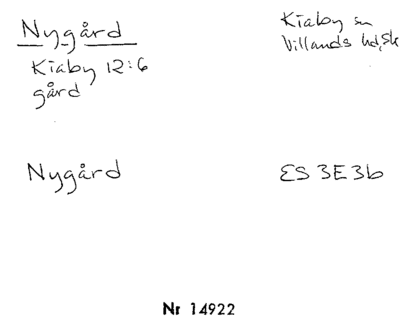 Nygård
Kiaby sn
Villands hd, Sk
Kiaby 12:6
gård
Nygård
ES 3E3b
Nr 14922